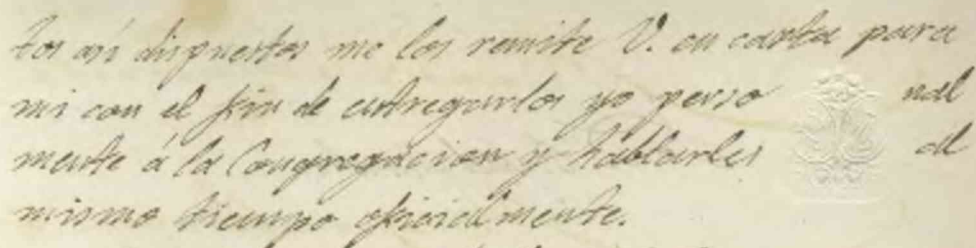 tos así dispuestos me los remite V. en carta para
mi con el fin de entregarlos yo perso nal
mente á la Congregacion y hablarles al
mismo tiempo oficialmente.